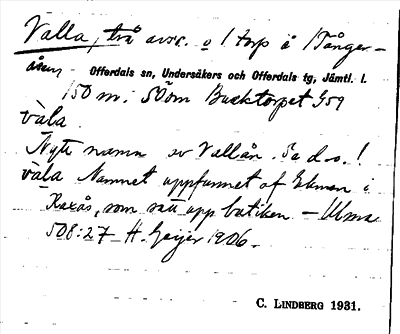 Valla, två avsr. o 1 torp å Tånger-
åsen,
Offerdals sn, Undersåkers och Offerdals tg, Jämtl. l.
150 m. SOm Backtorpet G59
vàla
Nytt namn av Vallån. Sa d.s.!
vàla Namnet uppfunnet af Ekman i
Kaxås, som satt upp butiken. – Ulma
508:27 H. Geijer 1906.
C. LINDBERG 1931.